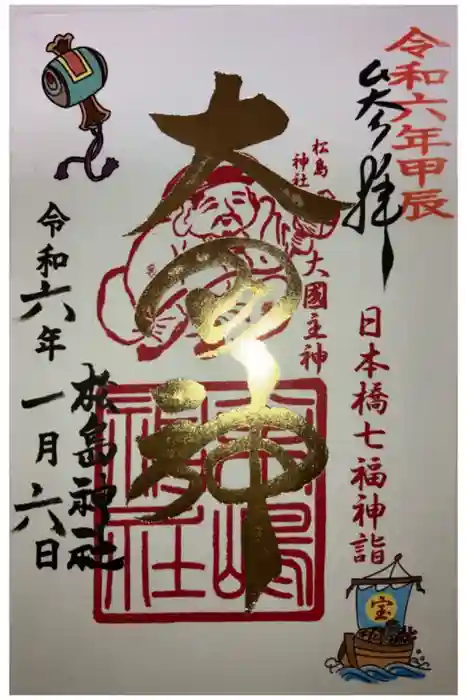 令和六年甲辰
奉拝
日本橋七福神詣
松島
神社
大國主神
大黒神
松島神社
令和六年
一月六日
松嶋
神社
宝